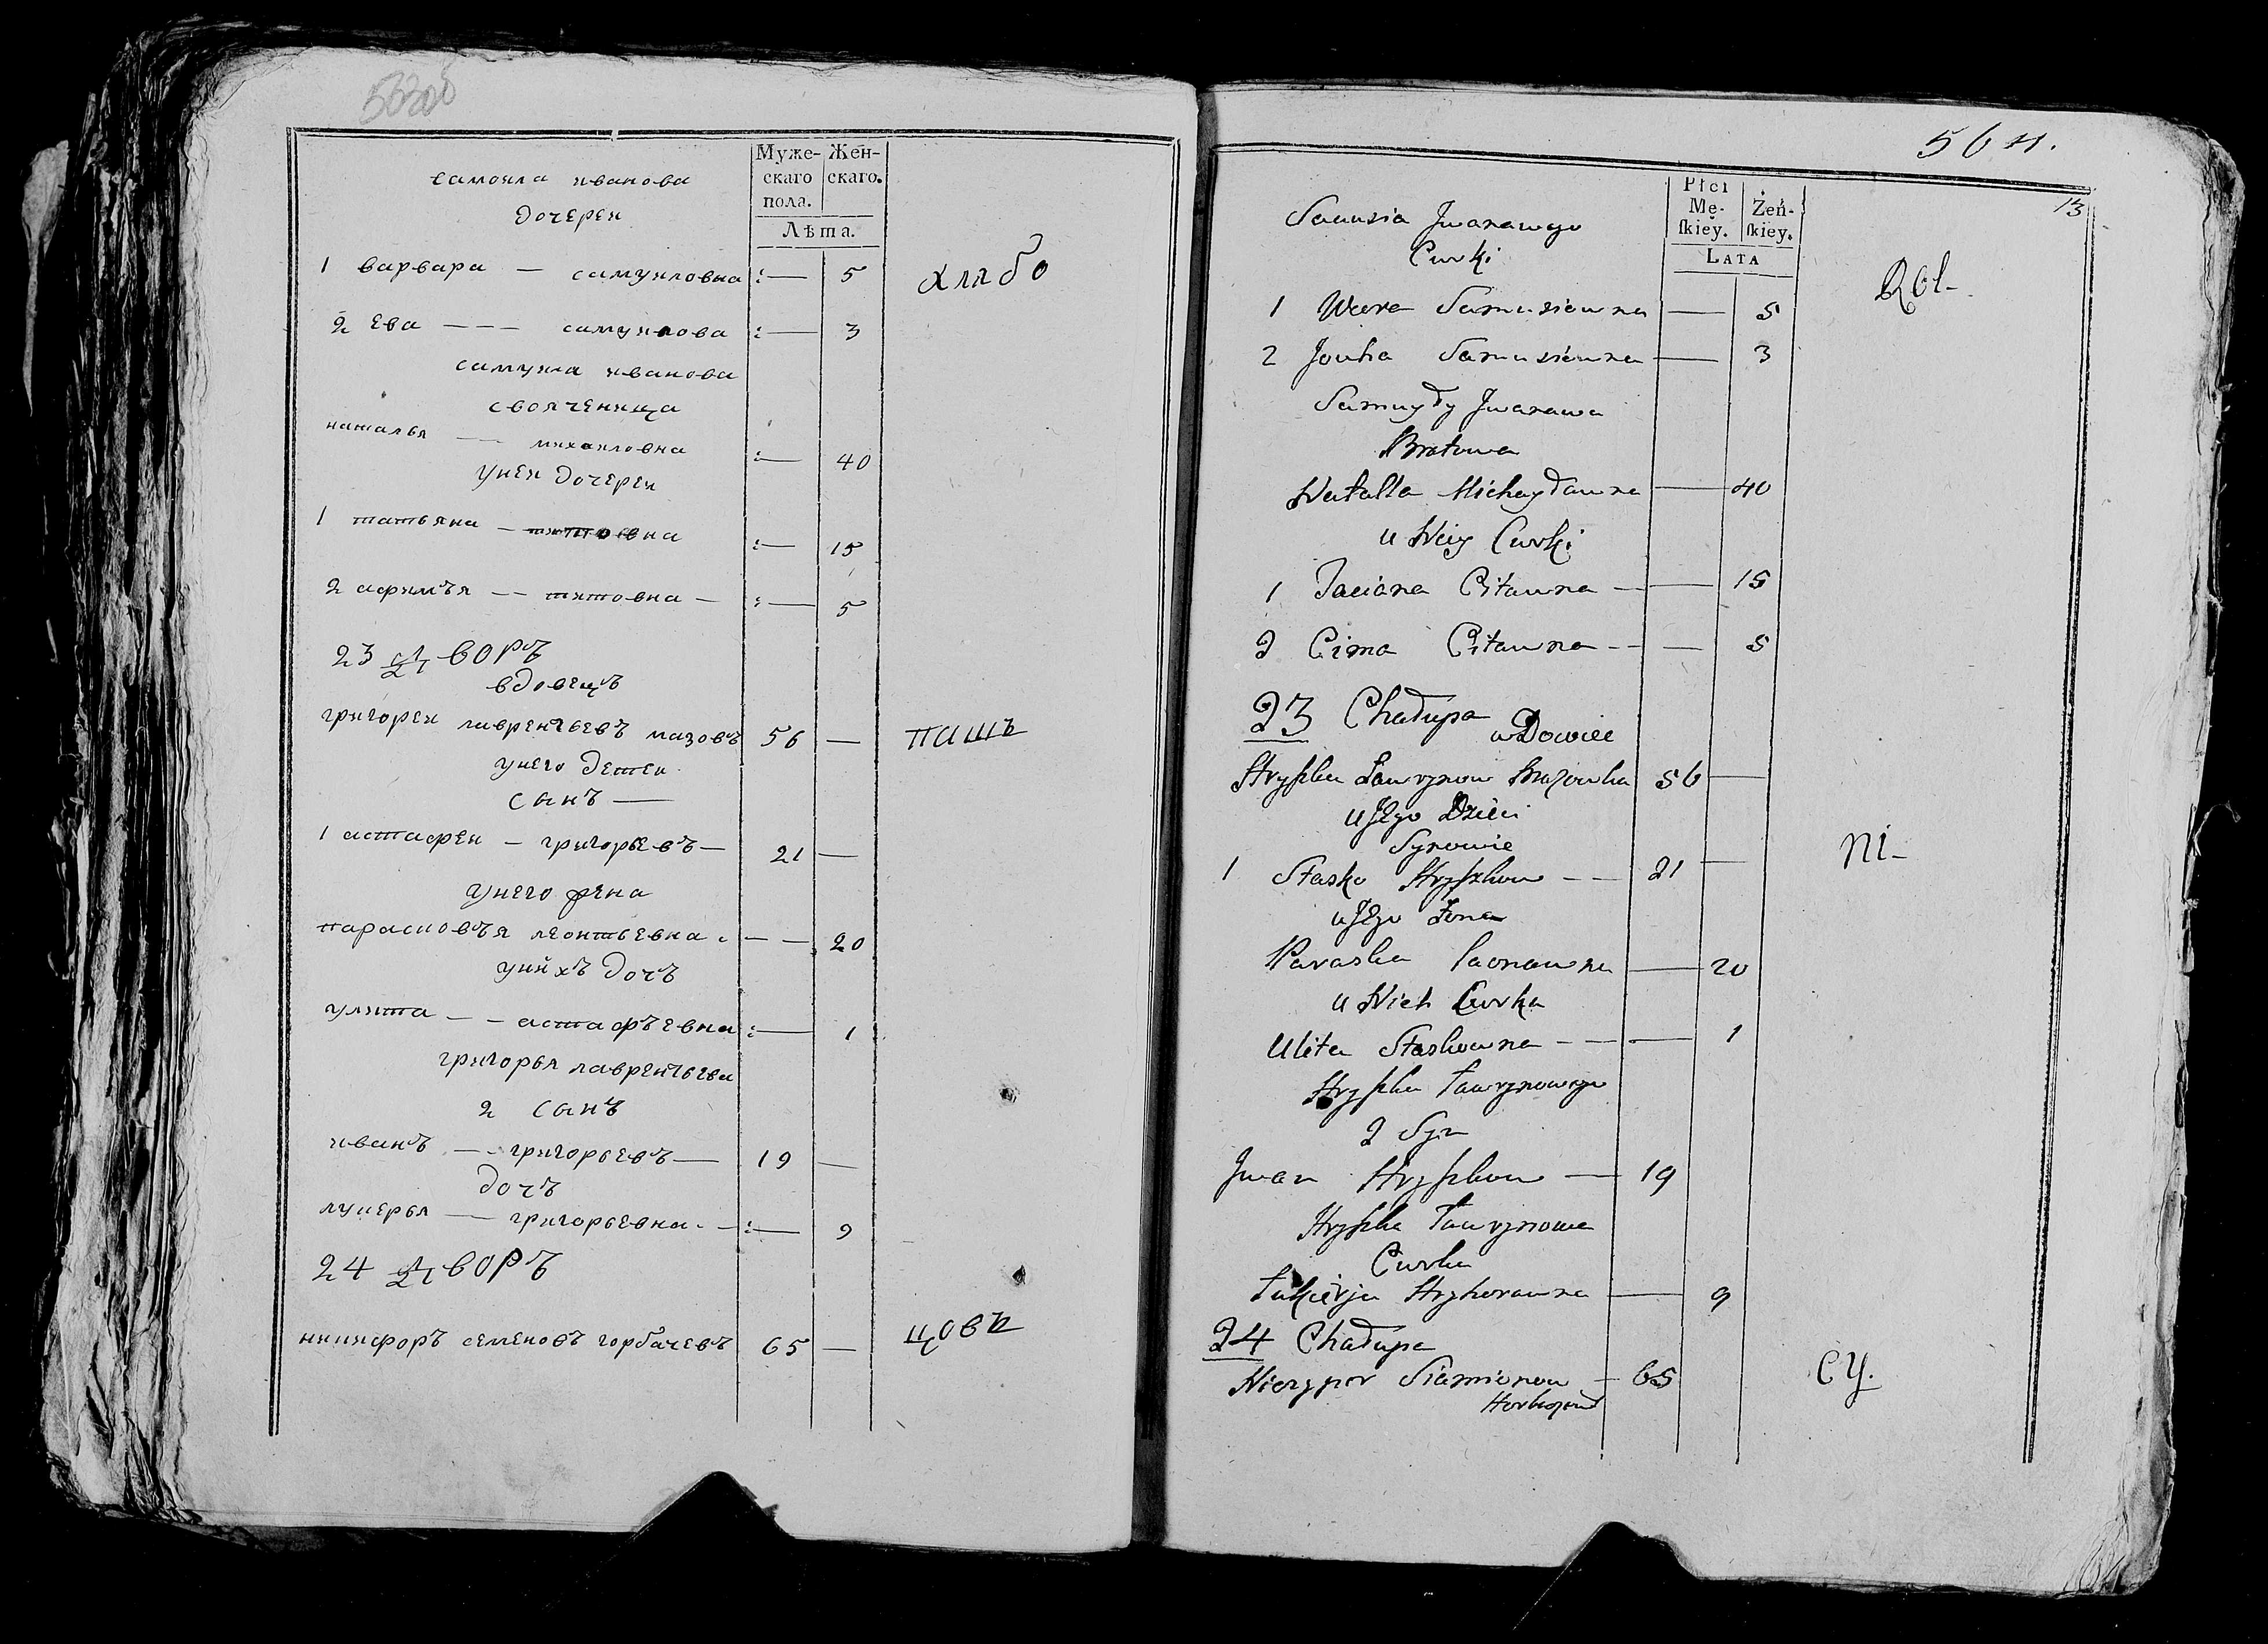 Муже- Жен-
скаго скаго.
пола.
Лѣта.
самоила иванова
дочереи
1 варвара — самуиловна :— 5 хлѣбо
2 ева — — — самуилова :— 3
самуила иванова
свояченица
наталья — — михаиловна :— 40
у неи дочереи
1 татьяна — титовна :— 15
2 афимъя — — титовна — :— 5
23 дворъ
вдовецъ
григореи лаврентьевъ мазовъ 56 — пашъ
унего детеи
сынъ —
1 астафеи — григорьевъ — 21 —
унего жена
парасковъя леонтьевна — — 20
унихъ дочъ
улита — — астафъевна :— 1
григорья лаврентьева
2 сынъ
иванъ — — григорьевъ — 19 —
дочъ
лукерья — григорьевна — :— 9
24 дворъ
никифоръ семеновъ горбачевъ 65 — цовъ
56 н.
13
Płci
Mę- Żeń-
skiey. skiey.
LATA
Samusia Jwanawego
Curki
Rol-
1 Wera Samusiewna — 5
2 Jouha Samusiewna — 3
Samuyły Jwanawa
Bratowa
Natalla Michayławna — 40
u Niey Curki
1 Taciana Citawna — — 15
2 Cima Citawna — — — 5
23 Chałupa
wDowiec
Hryszka Ławrynow Mazowka 56 —
uJEgo Dzieci
Synowie
1 Stasko Hryszkow — — 21 — ni-
uJEgo Żona
Paraska Laonawna — 20
u Nich Curka
Ulita Staskowna — — — 1
Hryszka Ławrynowego
2 Syn
Jwan Hryszkow — 19
Hryszka Ławrynowa
Curka
Łukierja Hryhorawna — 9
24 Chałupa
Nieczypor Siamionow — 65 cy.
Horbaczow